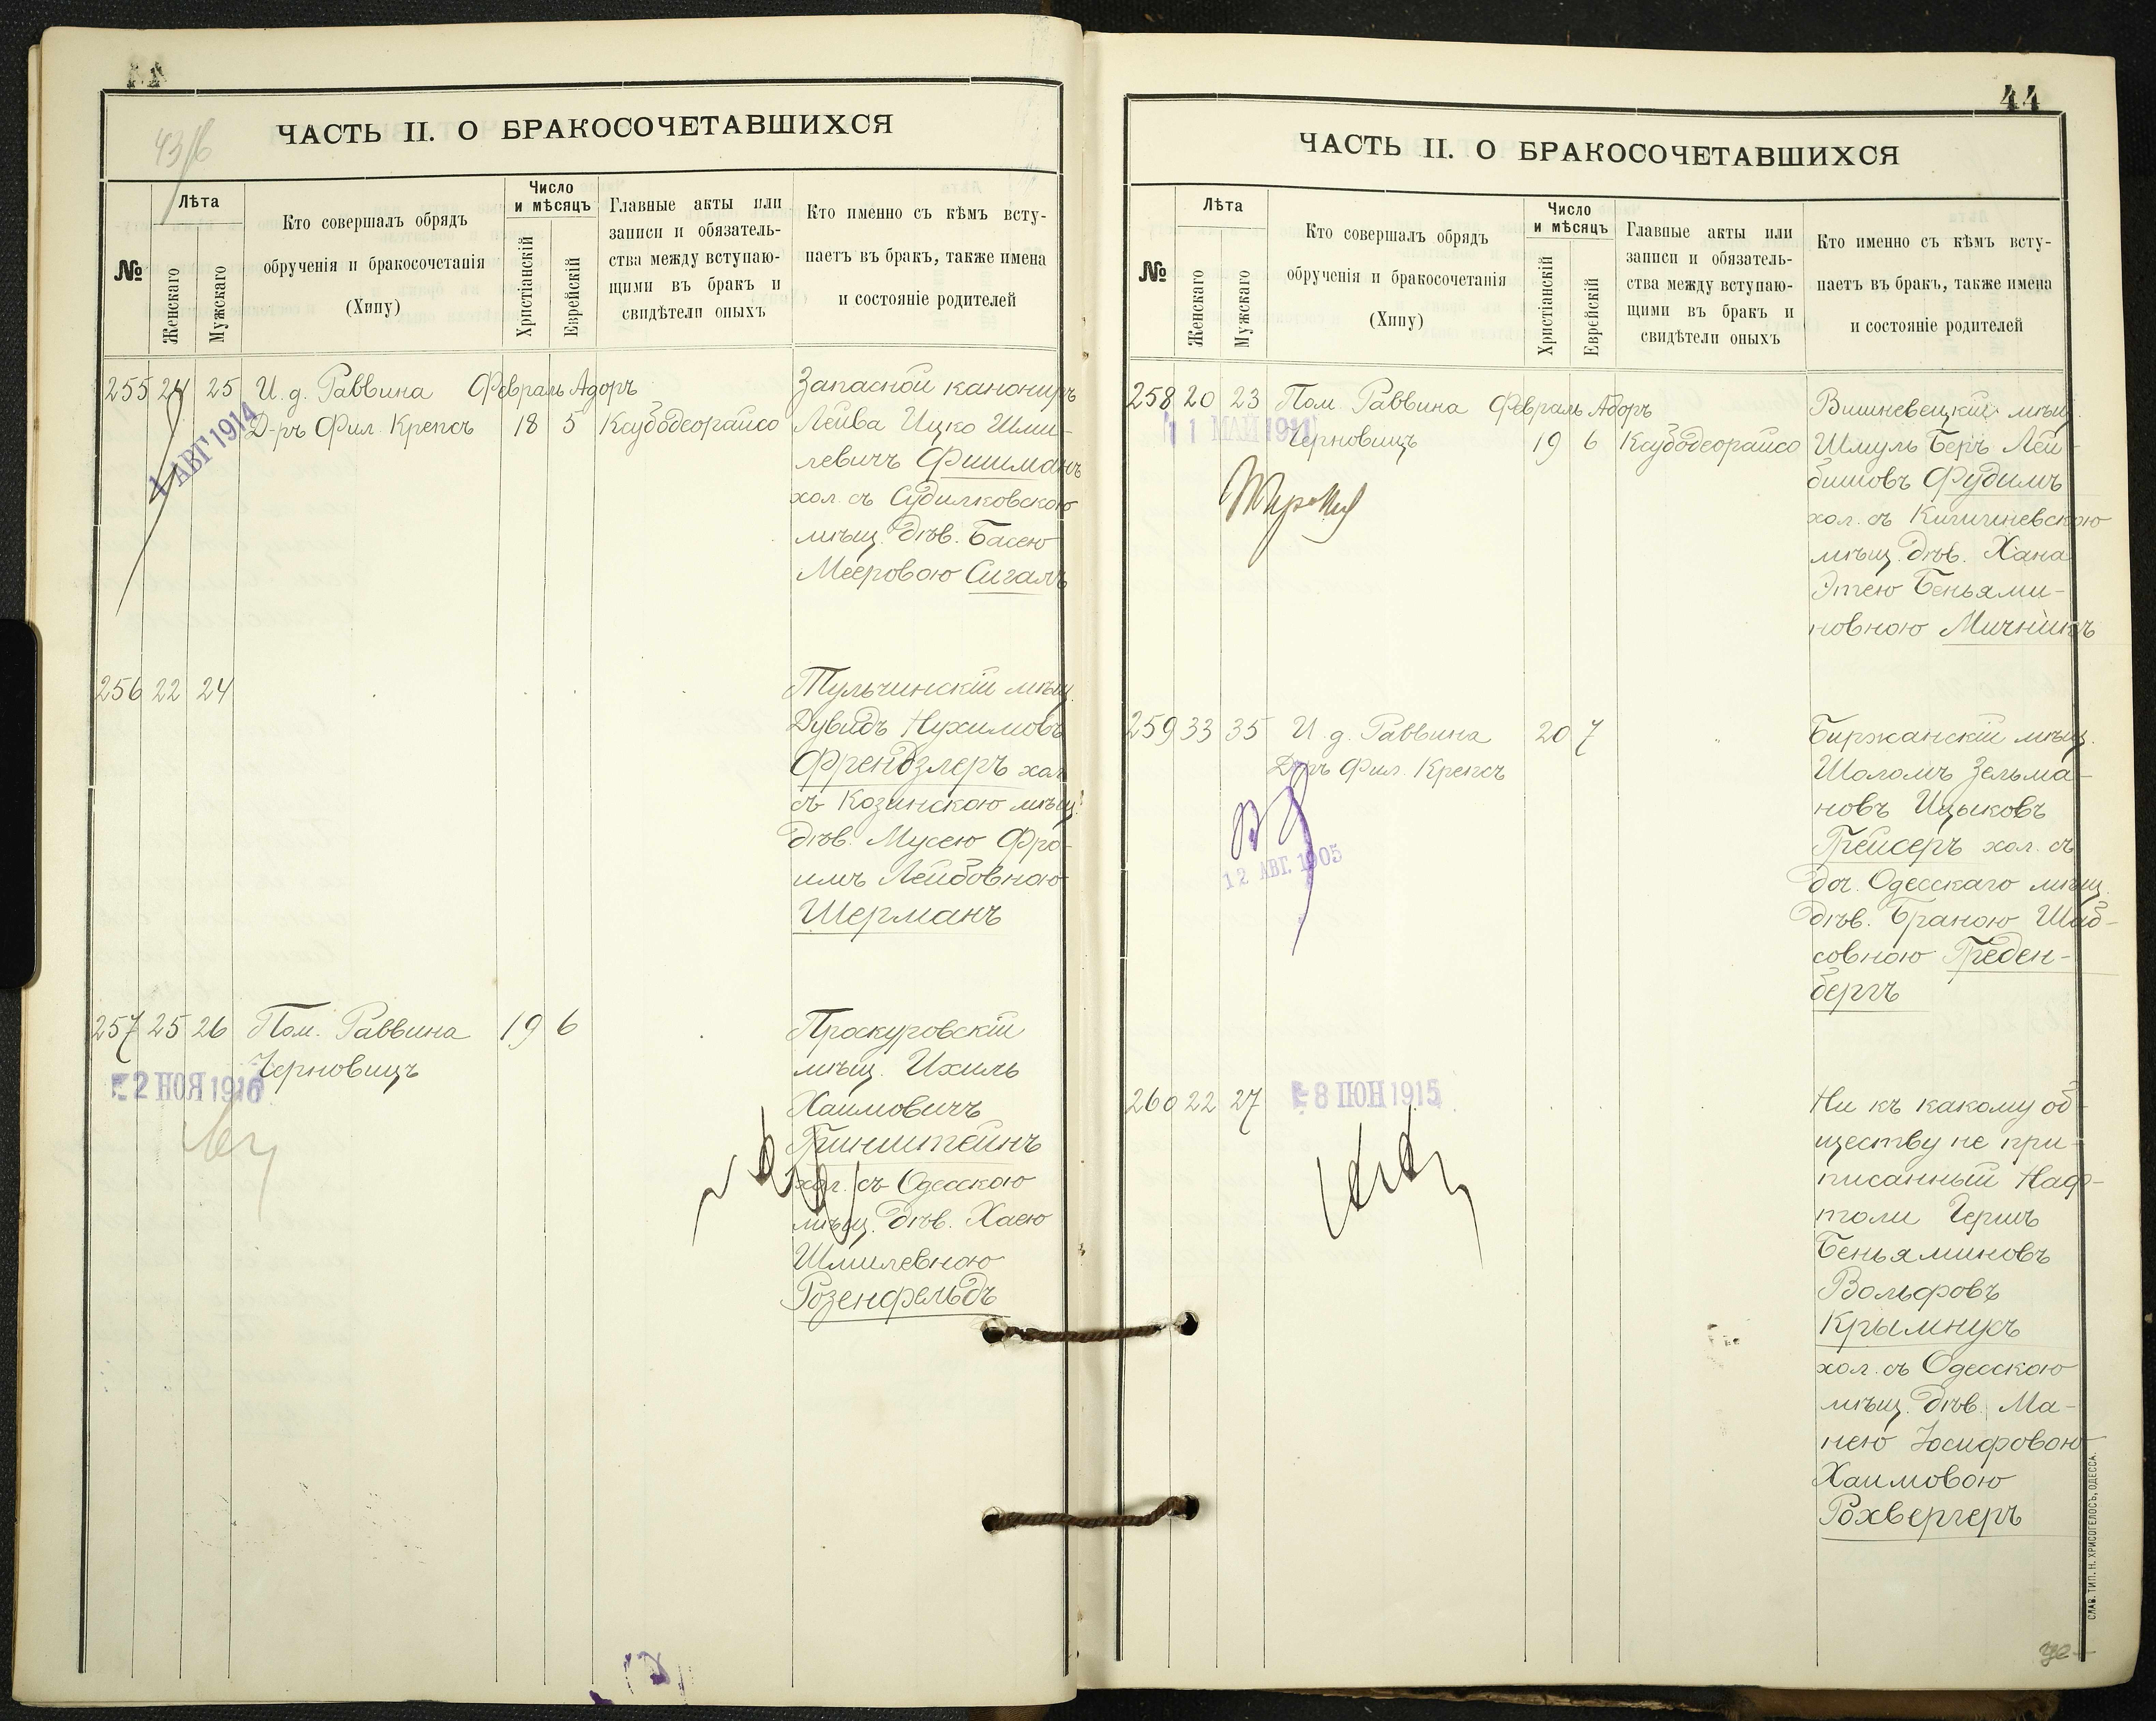 43/6
ЧАСТЬ II. О БРАКОСОЧЕТАВШИХСЯ
№
Лѣта
Женскаго
Мужскаго
Кто совершалъ обрядъ
обрученія и бракосочетанія
(Хипу)
Число
и мѣсяцъ
Христіанскій
Еврейскій
Главные акты или
записи и обязатель-
ства между вступаю-
щими въ бракъ и
свидѣтели оныхъ
Кто именно съ кѣмъ всту-
паетъ въ бракъ, также имена
и состояніе родителей
255 24 25 И. д. Раввина Февраль Адоръ
Д-ръ Фил. Крепсъ 18 5 Ксубодеорайсо
4 АВГ 1914
Запасной канониръ
Лейва Ицко Шми-
левичъ Фишманъ
хол. съ Судилковскою
мѣщ. дѣв. Басею
Мееровою Сигалъ
256 22 24
Тульчинскій мѣщ.
Дувидъ Нухимовъ
Френдзлеръ хол.
съ Козинскою мѣщ.
дѣв. Мусею Фро-
имъ Лейбовною
Шерманъ
257 25 26 Пом. Раввина 19 6
Черновицъ
2 НОЯ 1916
Проскуровскій
мѣщ. Ихиль
Хаимовичъ
Гринштейнъ
хол. съ Одесскою
мѣщ. дѣв. Хаею
Шмилевною
Розенфельдъ
44
ЧАСТЬ II. О БРАКОСОЧЕТАВШИХСЯ
№
Лѣта
Женскаго
Мужскаго
Кто совершалъ обрядъ
обрученія и бракосочетанія
(Хипу)
Число
и мѣсяцъ
Христіанскій
Еврейскій
Главные акты или
записи и обязатель-
ства между вступаю-
щими въ бракъ и
свидѣтели оныхъ
Кто именно съ кѣмъ всту-
паетъ въ бракъ, также имена
и состояніе родителей
258 20 23 Пом. Раввина Февраль Адоръ
Черновицъ 19 6 Ксубодеорайсо
11 МАЙ 1911
Вишневецкій мѣщ.
Шмуль Беръ Лей-
бишовъ Фудимъ
хол. съ Кишиневскою
мѣщ. дѣв. Хана
Этею Беньями-
новною Мичникъ
259 33 35 И. д. Раввина 20 7
Д-ръ Фил. Крепсъ
12 АВГ. 1905
Биржанскій мѣщ.
Шоломъ Зельма-
новъ Ицыковъ
Грейсеръ хол. съ
доч. Одесскаго мѣщ.
дѣв. Браною Шаб-
совною Греден-
бергъ
260 22 27
8 ІЮН 1915
Ни къ какому об-
ществу не при-
писанный Наф-
толи Гершъ
Беньяминовъ
Вольфовъ
Крымнусъ
хол. съ Одесскою
мѣщ. дѣв. Ма-
нею Іосифовою
Хаимовою
Рохвергеръ
СЛАВ. ТИП. Н. ХРИСОГЕЛОСЪ, ОДЕССА.